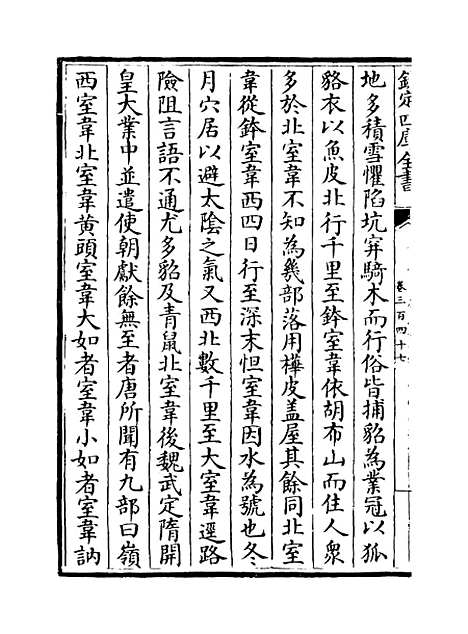 欽定四庫全書
卷三百四十七
地多積雪懼陷坑穽騎木而行俗皆捕貂為業冠以狐
貉衣以魚皮北行千里至鉢室韋依胡布山而住人衆
多於北室韋不知為幾部落用樺皮盖屋其餘同北室
韋從鉢室韋西四日行至深末怛室韋因水為號也冬
月穴居以避太陰之氣又西北數千里至大室韋逕路
險阻言語不通尤多貂及青鼠北室韋後魏武定隋開
皇大業中並遣使朝獻餘無至者唐所聞有九部曰嶺
西室韋北室韋黄頭室韋大如者室韋小如者室韋訥